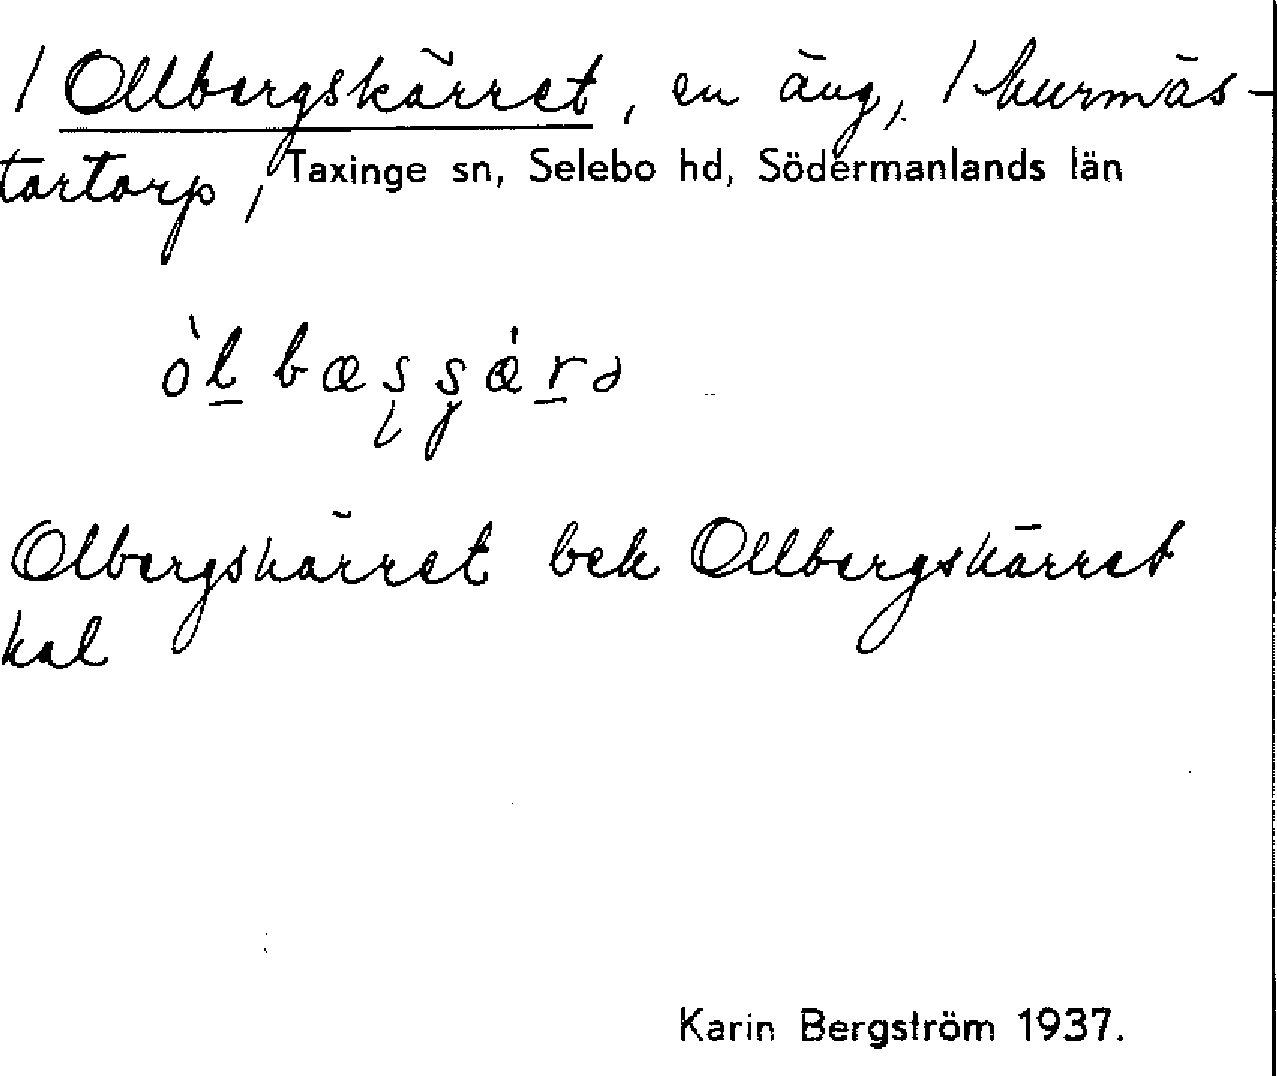 / Ollbergskärret, en äng, / hurmäs-
tartorp, / Taxinge sn, Selebo hd, Södermanlands län
Olbergskärret bek Ollbergskärret
kal
Karin Bergström 1937.